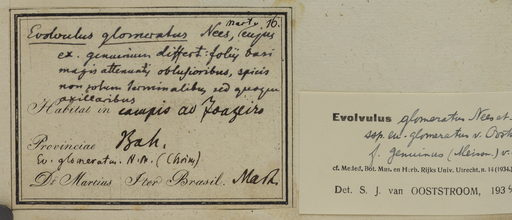 Martr. 16.
Evolvulus glomeratus Nees, cujus
ex. genuinum differt: foliis basi
magis attenuatis obtusioribus, spicis
non solum terminalibus, sed quoque
axillaribus
Habitat in campis ad Joazeiro
Provinciae Bah.
Ev. glomeratus. N. M. (Choisy)
Dr Martius Iter Brasil. Mart.
Evolvulus glomeratus Nees et
ssp. eu-glomeratus v. Oost
f. genuinus (Meissn.) v.
cf. Meded. Bot. Mus. en Herb. Rijks Univ. Utrecht, n. 14 (1934)
Det. S. J. van OOSTSTROOM, 1934